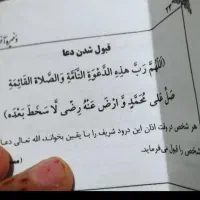 ۲۳
قبول شدن دعا
(اَللّٰهُمَّ رَبَّ هٰذِهِ الدَّعْوَةِ التَّامَّةِ وَالصَّلاةِ القَائِمَةِ
صَلِّ عَلٰی مُحَمَّدٍ وَّ ارْضَ عَنْهُ رِضًی لَّا سَخَطَ بَعْدَهُ)
هر شخص در وقت اذان این درود شریف را با یقین بخواند، الله تعالی دعا
شخص را قبول می‌فرماید.